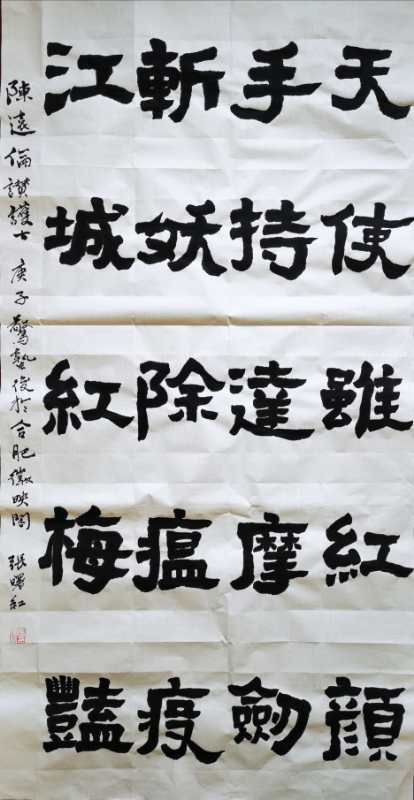 天使虽紅顔
手持達摩劒
斬妖除瘟疫
江城紅梅豔
陳遠倫讃護士 庚子驚蟄後於合肥徽映閣 張曙紅